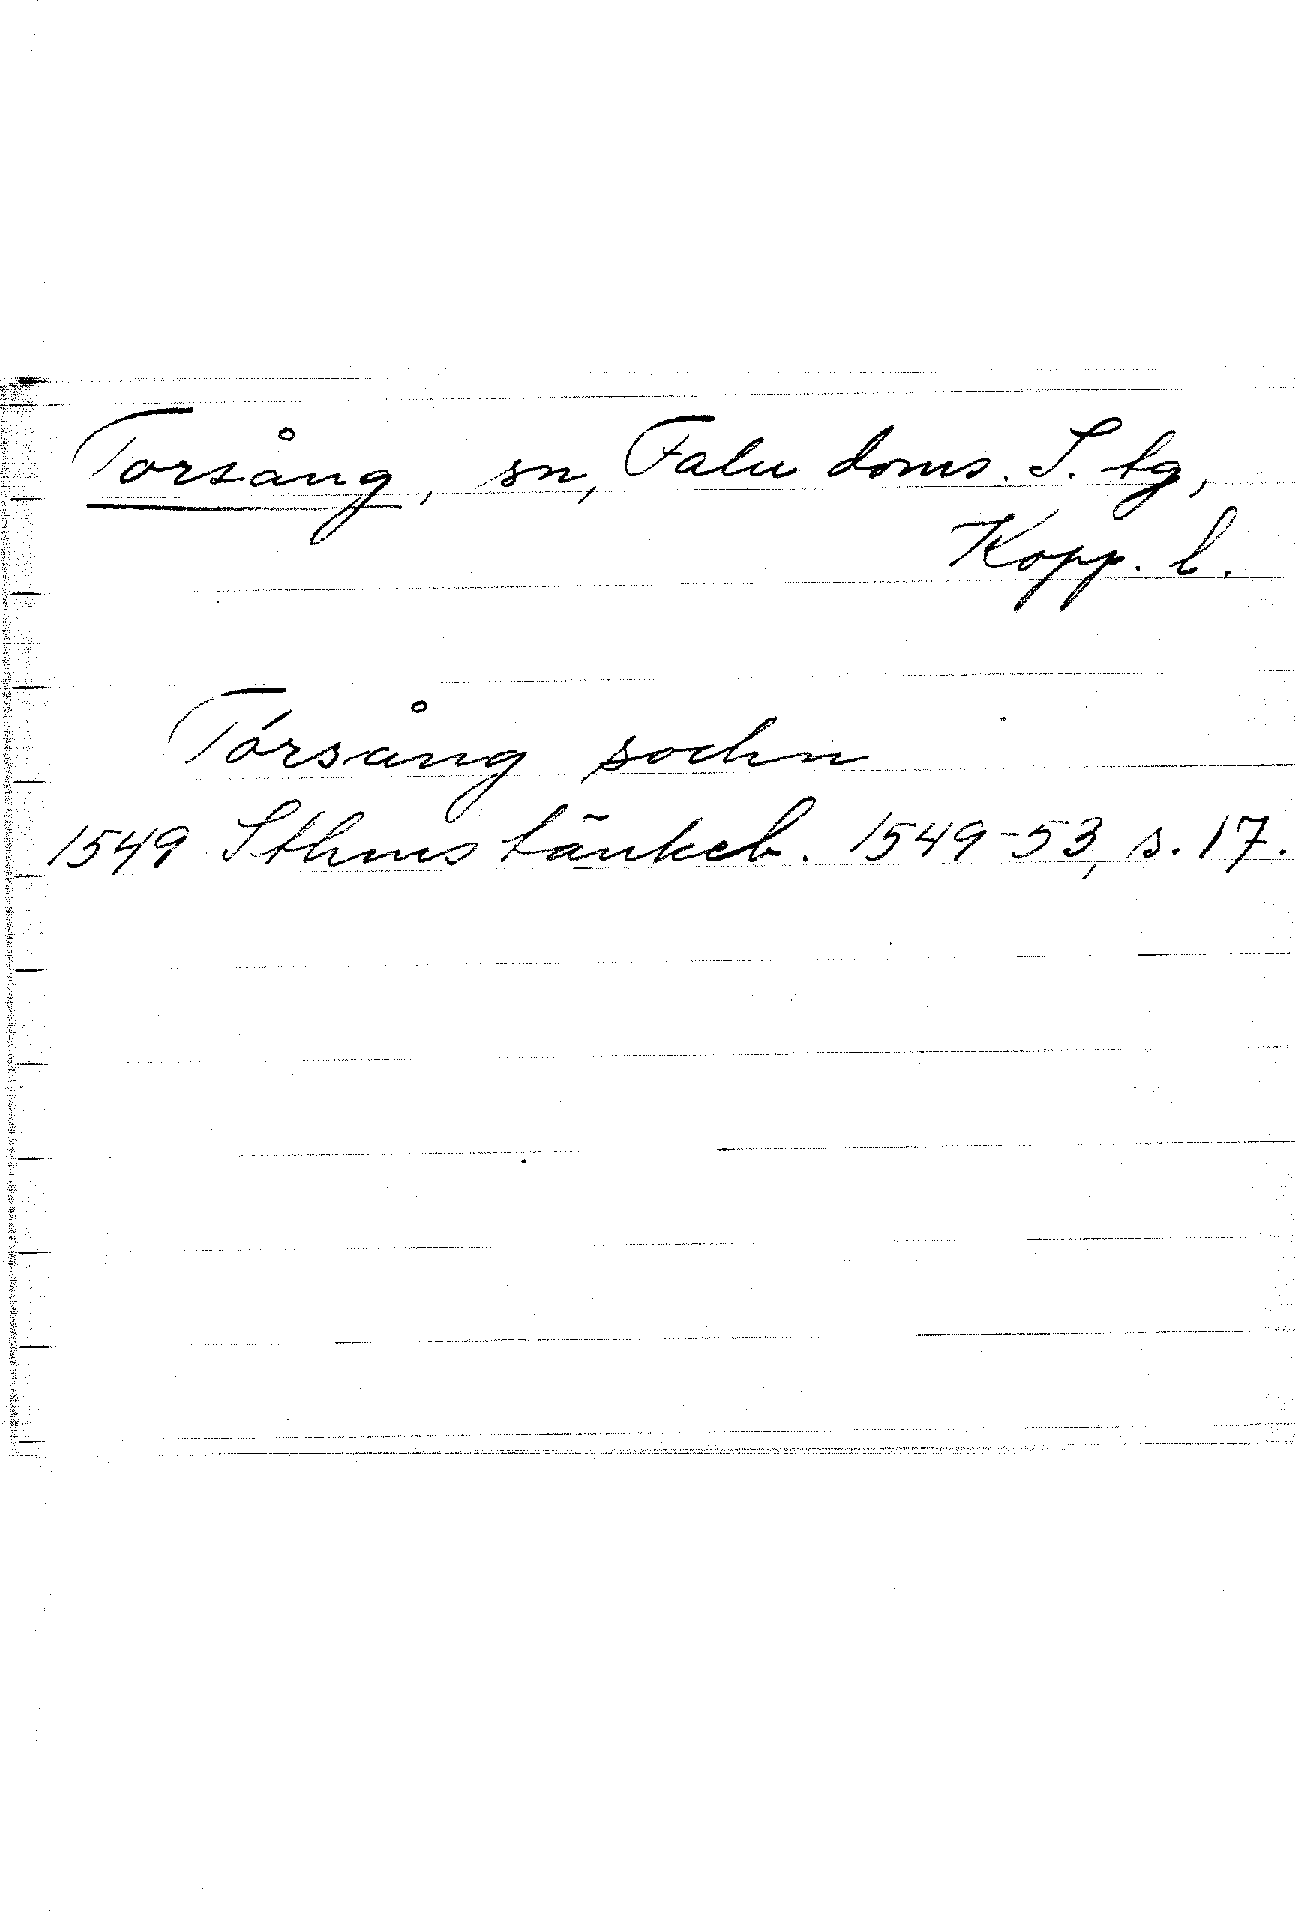 Torsång, sn, Falu doms. S. tg,
Kopp. l.
Tórsång sochn
1549 Sthms tänkeb. 1549-53, s. 17.